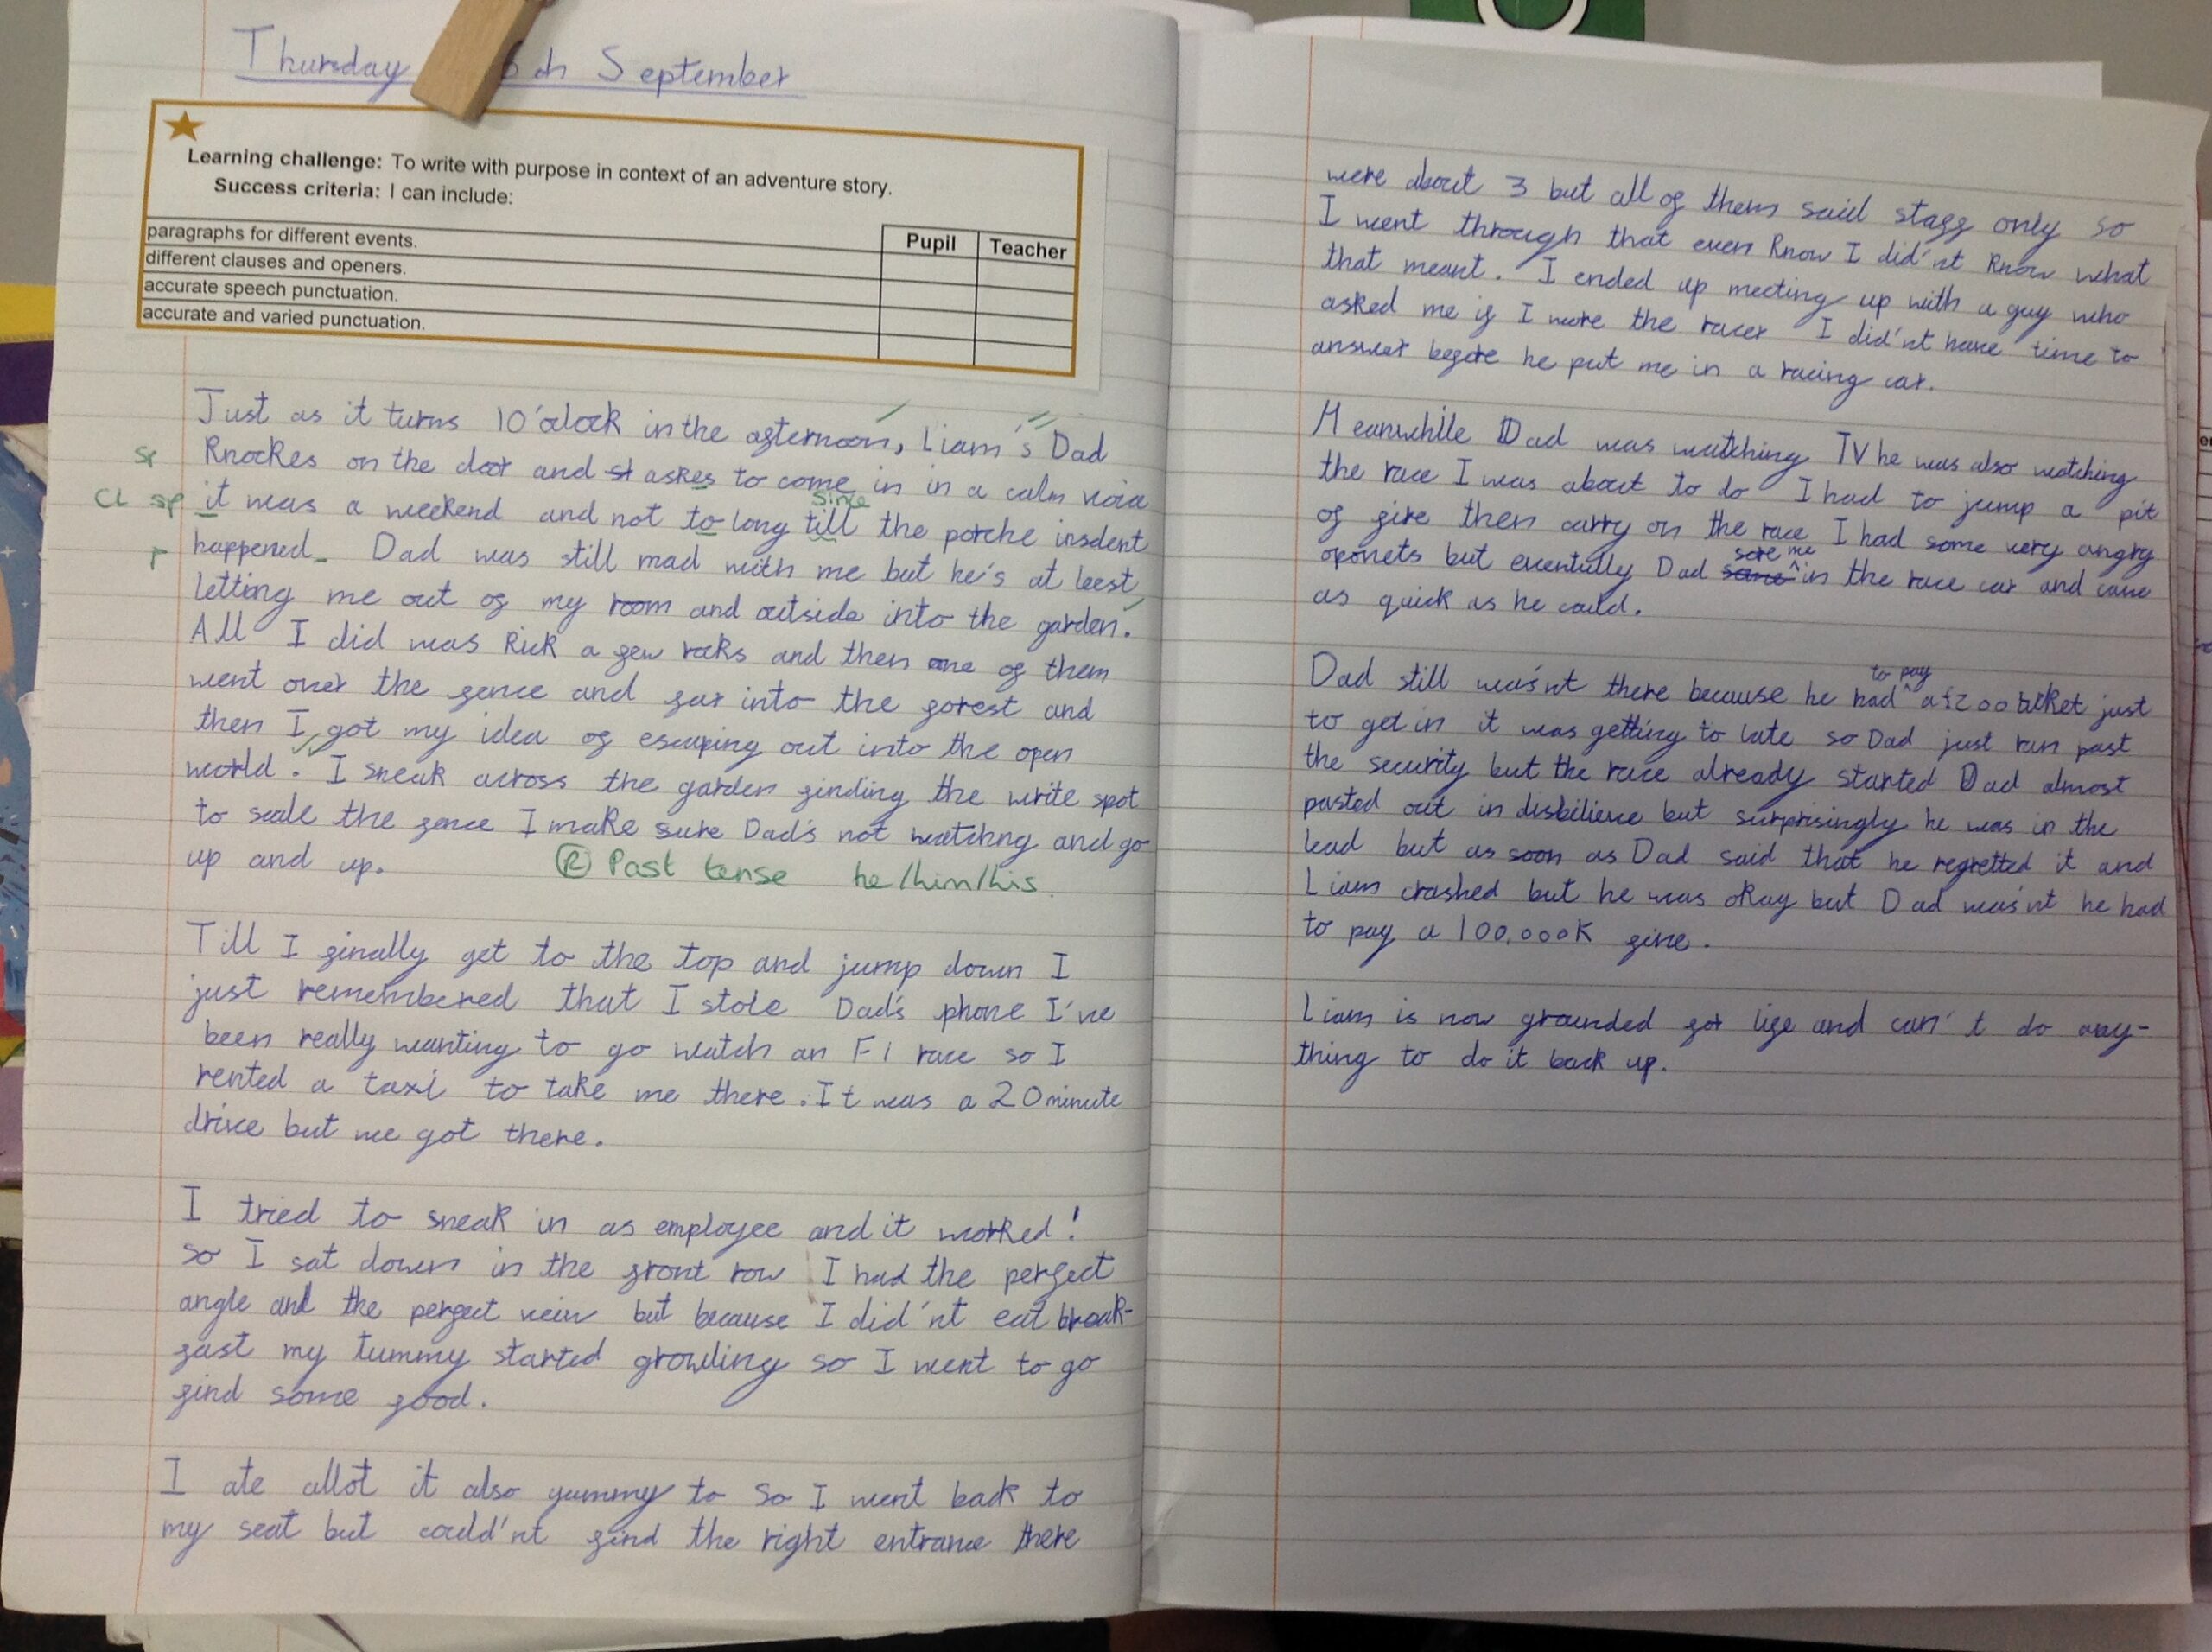 Thursday th September
Learning challenge: To write with purpose in context of an adventure story.
Success criteria: I can include:
Pupil Teacher
paragraphs for different events.
different clauses and openers.
accurate speech punctuation.
accurate and varied punctuation.
Just as it turns 10'oclock in the afternoon, Liam's Dad
sp Knockes on the door and st askes to come in in a calm voice
CL sp it was a weekend and not to long till since the porche insdent
P happened_ Dad was still mad with me but he's at leest
letting me out of my room and outside into the garden.
All I did was kick a few rocks and then one of them
went over the fence and far into the forest and
then I got my idea of escaping out into the open
world. I sneak across the garden finding the write spot
to scale the fence I make sure Dad's not watchng and go
up and up.
R Past tense he/him/his
Till I finally get to the top and jump down I
just remembered that I stole Dad's phone I've
been really wanting to go watch an F1 race so I
rented a taxi to take me there. It was a 20 minute
drive but we got there.
I tried to sneak in as employee and it worked!
so I sat down in the front row I had the perfect
angle and the perfect veiw but because I did'nt eat break-
fast my tummy started growling so I went to go
find some food.
I ate allot it also yummy to so I went back to
my seat but could'nt find the right entrance there
were about 3 but all of them said staff only so
I went through that even know I did'nt know what
that meant. I ended up meeting up with a guy who
asked me if I were the racer I did'nt have time to
answer before he put me in a racing car.
Meanwhile Dad was watching TV he was also watching
the race I was about to do I had to jump a pit
of fire then carry on the race I had some very angry
oponets but eventully Dad me in the race car and came
as quick as he could.
Dad still was'nt there because he had to pay a £200 ticket just
to get in it was getting to late so Dad just ran past
the security but the race already started Dad almost
pasted out in disbilieve but surprisingly he was in the
lead but as soon as Dad said that he regretted it and
Liam crashed but he was okay but Dad was'nt he had
to pay a 100,000K fine.
Liam is now grounded for life and can't do any-
thing to do it back up.